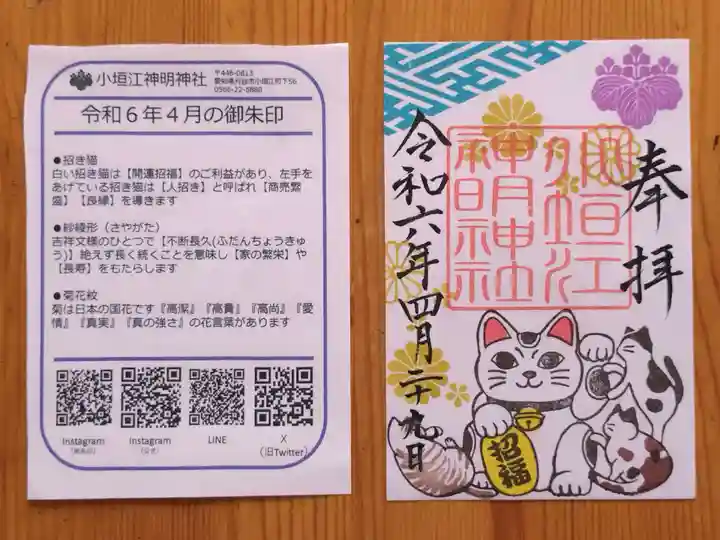 小垣江神明神社
〒448-0813
愛知県刈谷市小垣江町下56
0566-22-8880
令和6年4月の御朱印
●招き猫
白い招き猫は【開運招福】のご利益があり、左手を
あげている招き猫は【人招き】と呼ばれ【商売繁
盛】【良縁】を導きます
●紗綾形（さやがた）
吉祥文様のひとつで【不断長久(ふだんちょうきゅ
う)】絶えず長く続くことを意味し【家の繁栄】や
【長寿】をもたらします
●菊花紋
菊は日本の国花です『高潔』『高貴』『高尚』『愛
情』『真実』『真の強さ』の花言葉があります
Instagram
Instagram
(公式)
LINE
X
(旧Twitter)
奉拝
小垣江
神明神社
令和六年四月二十九日
招福